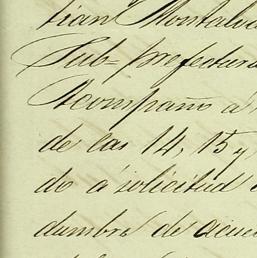 tian Montalv
Sub-prefectura
Acompaño a
de las 14, 15 y
do a solicitud
dumbre de acue